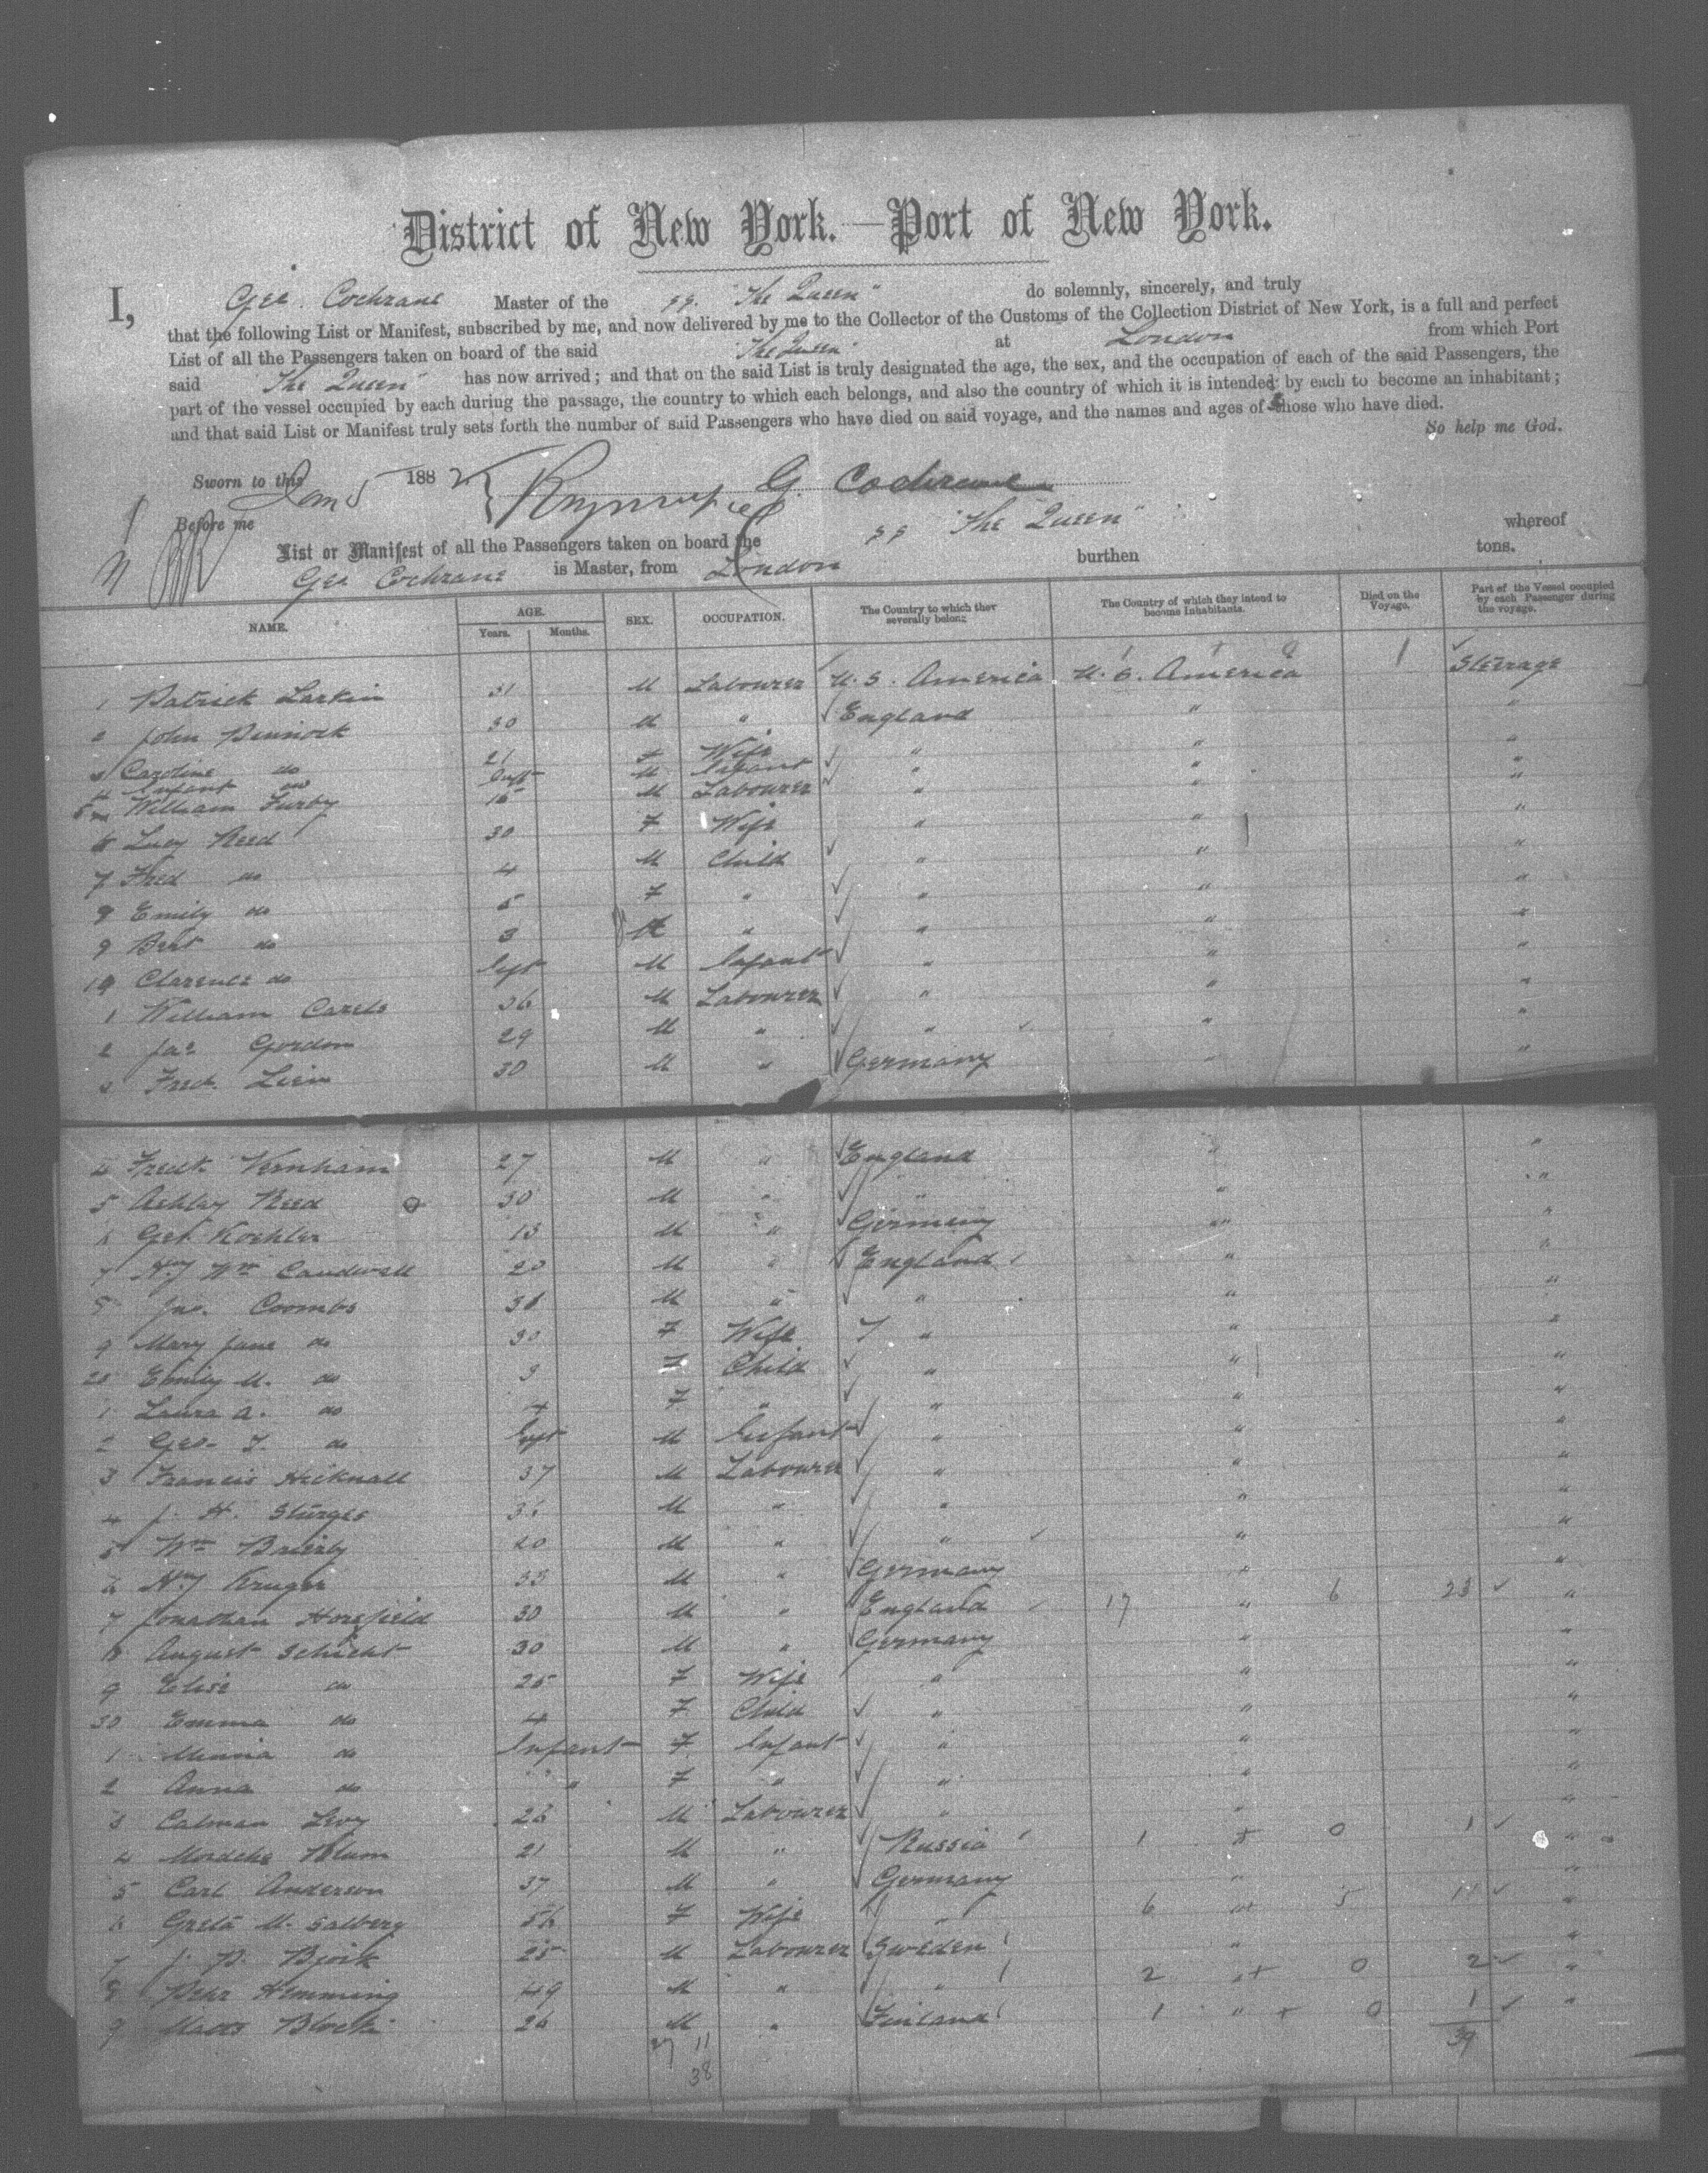 District of New York.—Port of New York.
I, Geo. Cochrane Master of the s.s. "The Queen" do solemnly, sincerely, and truly
that the following List or Manifest, subscribed by me, and now delivered by me to the Collector of the Customs of the Collection District of New York, is a full and perfect
List of all the Passengers taken on board of the said "The Queen" at London from which Port
said "The Queen" has now arrived; and that on the said List is truly designated the age, the sex, and the occupation of each of the said Passengers, the
part of the vessel occupied by each during the passage, the country to which each belongs, and also the country of which it is intended by each to become an inhabitant;
and that said List or Manifest truly sets forth the number of said Passengers who have died on said voyage, and the names and ages of those who have died.
So help me God.
Sworn to this Jan 5 1882 G. Cochrane
Before me
List or Manifest of all the Passengers taken on board the s s "The Queen" whereof
Geo Cochrane is Master, from London burthen tons.
NAME. AGE. Years. Months. SEX. OCCUPATION. The Country to which they severally belong The Country of which they intend to become Inhabitants. Died on the Voyage. Part of the Vessel occupied by each Passenger during the voyage.
1 Patrick Larkin 31 M Labourer U.S. America U.S. America 1 Steerage
2 John Pinnock 30 M " England " "
3 Caroline do 21 F Wife " " "
4 Infant do Inft M Infant " " "
5 William Furby 16 M Labourer " " "
6 Lucy Reed 30 F Wife " " "
7 Fred do 4 M Child " " "
8 Emily do 5 F " " " "
9 Bert do 3 M " " " "
10 Clarence do Inft M Infant " " "
1 William Carels 36 M Labourer " " "
2 Jas Gordon 29 M " " " "
3 Fred. Lein 30 M " Germany " "
4 Fredk Vernham 27 M " England " "
5 Ashley Reed 30 M " " " "
6 Get Koehler 13 M " Germany " "
7 Hy Wm Caudwell 20 M " England " "
8 Jno. Coombs 31 M " " " "
9 Mary Jane do 30 F Wife " " "
20 Emily M. do 3 F Child " " "
1 Laura A. do 4 F " " " "
2 Geo. F. do Inft M Infant " " "
3 Francis Hicknall 37 M Labourer " " "
4 J. H. Sturges M " " " "
5 Wm Brierly 20 M " " " "
6 Hy Kruger 33 M " Germany " "
7 Jonathan Horsfield 30 M " England 17 " 6 23 "
8 August Schicht 30 M " Germany " "
9 Elise do 25 F Wife " " "
30 Emma do 4 F Child " " "
1 Minna do Infant F Infant " " "
2 Anna do " F " " " "
3 Calman Levy 23 M Labourer " " "
4 Mordche Blum 21 M " Russia 1 " 0 1 "
5 Carl Anderson 37 M " Germany " "
6 Greta M. Salberg 56 F Wife " 6 " 5 11 "
7 J. P. Bjork 25 M Labourer Sweden " "
8 Pehr Hemming 49 M " " 2 " 0 2 "
9 Matts Block 26 M " Finland 1 " 0 1 "
27 11 39
38